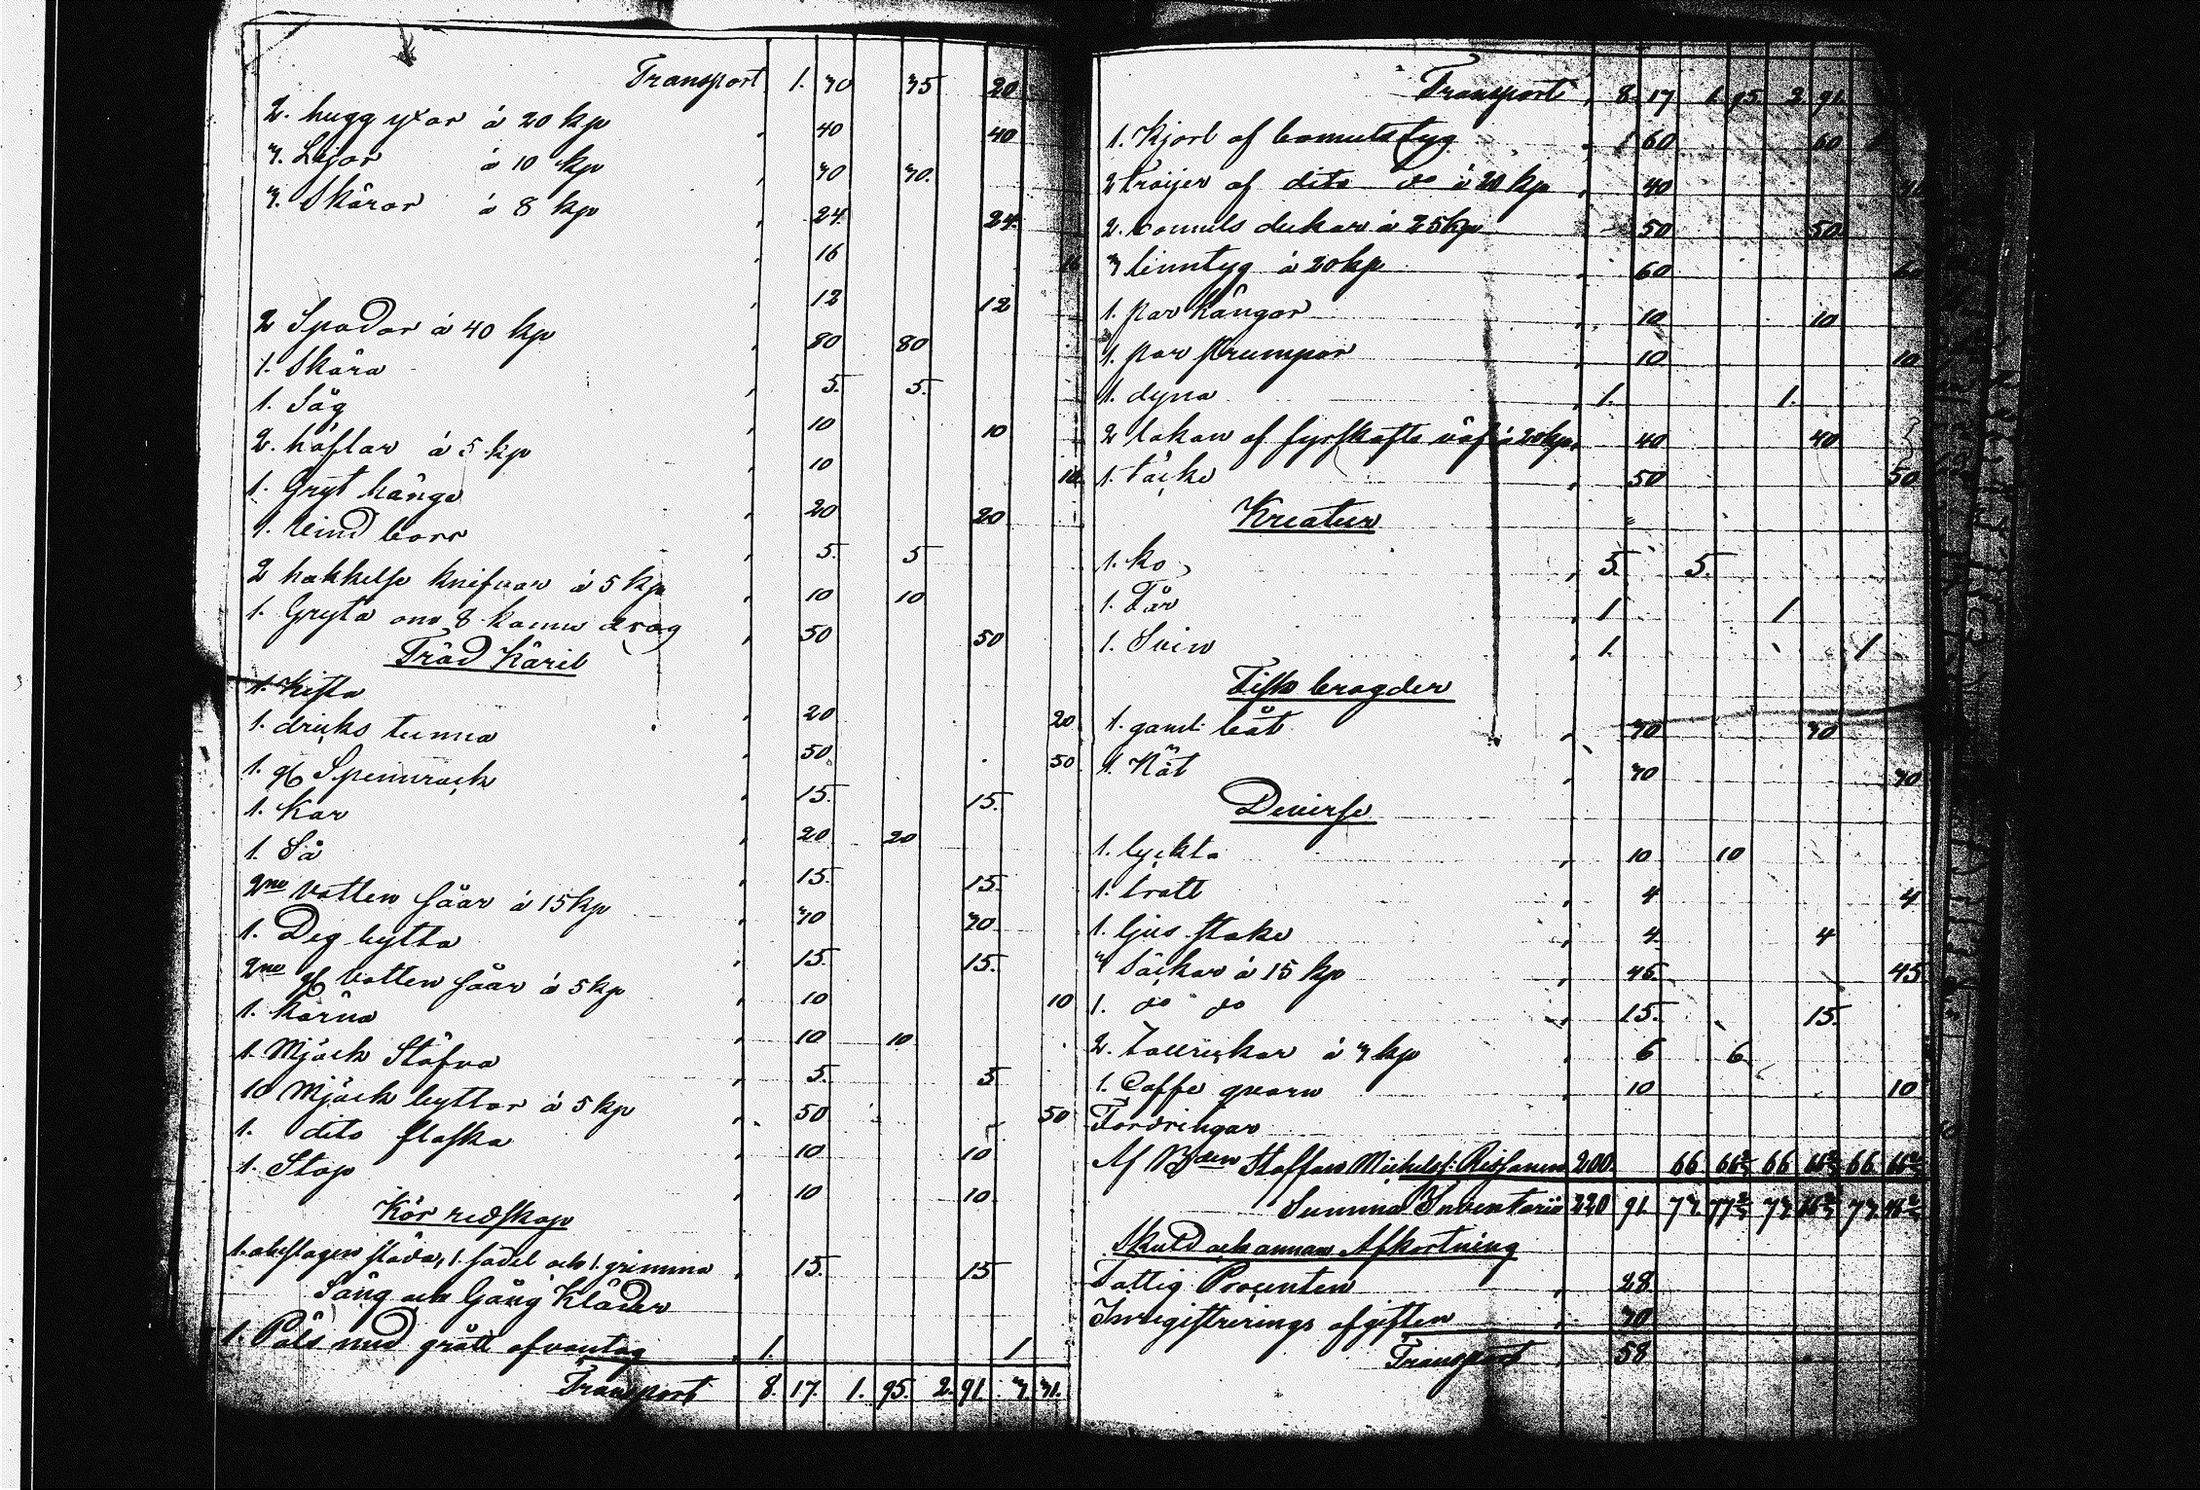 Transport 1. 30 35 20
2. hugg yxor á 20 kp 40 40
3. Lijor á 10 kp 30 30.
3. Skäror á 8 kp 24. 24.
16 16
12 12
2 Spador á 40 kp 80 80
1. Skära 5. 5.
1. Såg 10 10
2. häflar á 5 kp 10 10
1. Gryt hänge 20 20
1. Vind borr 5. 5
2 hakkelse knifvar á 5 kp 10 10
1. Gryta om 8 kannu drag 50 50
Träd Käril
1. Kista 20 20
1. dricks tunna 50 50
1. Spennrack 15. 15.
1. Kar 20 20
1. Så 15. 15.
2ne vatten såar á 15 kp 30 30
1. Deg bytta 15. 15.
2ne vatten såar á 5 kp 10 10
1. Kärna 10 10
1. Mjöck Stäfva 5. 5
10 Mjöck byttor á 5 kp 50 50
1. dito flaska 10 10
1. Stop 10 10
Kör redskap
1. obeslagen släda, 1. sadel och 1. grimma 15. 15
Säng och Gång Kläder
1. Päls med grått ofvantag 1. 1
Transport 8. 17. 1. 95. 2. 91. 3. 31.
Transport 8. 17 1. 95. 2. 91.
1. Kjorl af bomulstyg 1 60 60 1
2 tröijer af dito do á 20 kp 40 40
2. bomuls dukar á 25 kp 50 50
3 linntyg á 20 kp 60 60
1. par kängor 10 10
1. par strumpor 10 10
1. dyna 1. 1.
2 lakan af fyrskafts väf á 20 kp 40 40
1. täcke 50 50
Kreatur
1. ko 5. 5.
1. Får 1 1
1. Svin 1. 1
Fisk bragder
1. gaml: båt 30 30
1. Nät 30 30
Deverse
1. lyckta 10 10
1. tratt 4 4
1. ljus stake 4. 4
3 säckar á 15 kp 45. 45
1. do do 15. 15.
2. Tallrickar á 3 kp 6 6
1. Caffe qvarn 10 10
Fordringar
Af Bden Staffan Michelss: Rissanen 200. 66 66⅔ 66 66⅔ 66 66⅔
Summa Inventarii 220 91. 73. 77⅔ 73. 66⅔ 73. 46⅔
Skuld och annan Afkortning
Fattig Procenten 28
Inregistrerings afgiften 30
Transport 58